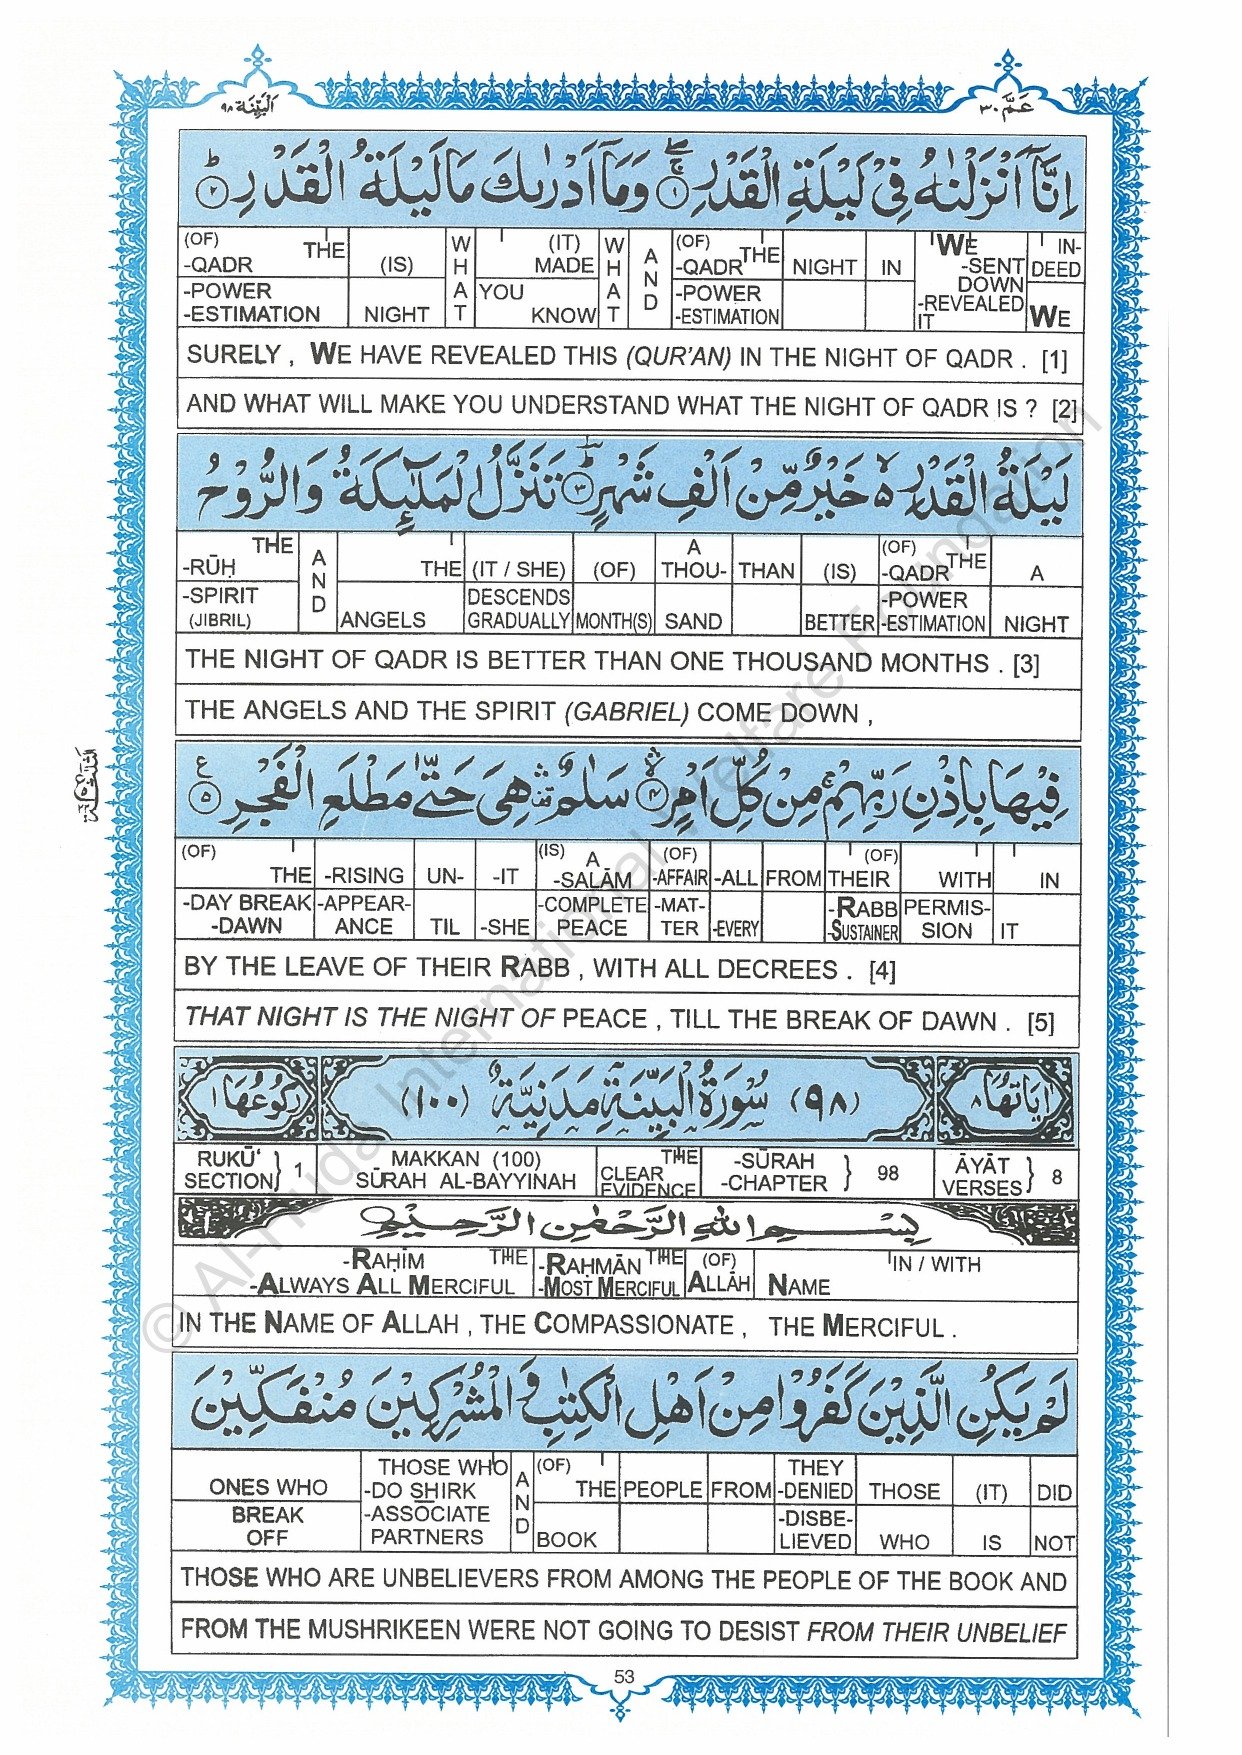 اَلْبَيِّنَة ٩٨
عَـمَّ ٣٠
اِنَّاۤ اَنْزَلْنٰهُ فِیْ لَیْلَةِ الْقَدْرِ ۚۖ ۝١ وَمَاۤ اَدْرٰىكَ مَا لَیْلَةُ الْقَدْرِ ؕ ۝٢
(OF) THE (IS) W H A T (IT) MADE W H A T A N D (OF) THE NIGHT IN WE IN-
-QADR YOU -QADR -SENT DEED
-POWER NIGHT KNOW -POWER DOWN WE
-ESTIMATION -ESTIMATION -REVEALED IT
SURELY , WE HAVE REVEALED THIS (QUR'AN) IN THE NIGHT OF QADR . [1]
AND WHAT WILL MAKE YOU UNDERSTAND WHAT THE NIGHT OF QADR IS ? [2]
لَیْلَةُ الْقَدْرِ ۙ۬ خَیْرٌ مِّنْ اَلْفِ شَهْرٍ ؕ ۝٣ تَنَزَّلُ الْمَلٰٓىِٕكَةُ وَالرُّوْحُ
THE A N D THE (IT / SHE) (OF) A THOU- THAN (IS) (OF) THE A
-RŪḤ -QADR
-SPIRIT ANGELS DESCENDS MONTH(S) SAND BETTER -POWER NIGHT
(JIBRIL) GRADUALLY -ESTIMATION
THE NIGHT OF QADR IS BETTER THAN ONE THOUSAND MONTHS . [3]
THE ANGELS AND THE SPIRIT (GABRIEL) COME DOWN ,
فِیْهَا بِاِذْنِ رَبِّهِمْ ۚ مِنْ كُلِّ اَمْرٍ ۙۛ ۝٤ سَلٰمٌ ۛ۫ هِیَ حَتّٰی مَطْلَعِ الْفَجْرِ ۠ ۝٥
(OF) THE -RISING UN- -IT (IS) A -SALĀM (OF) -AFFAIR -ALL FROM (OF) THEIR WITH IN
-DAY BREAK -APPEAR- TIL -SHE -COMPLETE -MAT- -EVERY -RABB PERMIS- IT
-DAWN ANCE PEACE TER -SUSTAINER SION
BY THE LEAVE OF THEIR RABB , WITH ALL DECREES . [4]
THAT NIGHT IS THE NIGHT OF PEACE , TILL THE BREAK OF DAWN . [5]
اٰيَاتُهَا ٨ (٩٨) سُوْرَةُ الْبَيِّنَةِ مَدَنِيَّةٌ (١٠٠) رُكُوْعُهَا ١
RUKŪ‘ } 1 MAKKAN (100) THE -SŪRAH } 98 ĀYĀT } 8
SECTION SŪRAH AL-BAYYINAH CLEAR EVIDENCE -CHAPTER VERSES
بِسْمِ اللهِ الرَّحْمٰنِ الرَّحِيْمِ
-RAḤĪM THE -RAḤMĀN THE (OF) IN / WITH
-ALWAYS ALL MERCIFUL -MOST MERCIFUL ALLĀH NAME
IN THE NAME OF ALLAH , THE COMPASSIONATE , THE MERCIFUL .
لَمْ یَكُنِ الَّذِیْنَ كَفَرُوْا مِنْ اَهْلِ الْكِتٰبِ وَالْمُشْرِكِیْنَ مُنْفَكِّیْنَ
ONES WHO THOSE WHO A N D (OF) THE PEOPLE FROM THEY THOSE (IT) DID
-DO SHIRK -DENIED
BREAK -ASSOCIATE BOOK -DISBE- WHO IS NOT
OFF PARTNERS LIEVED
THOSE WHO ARE UNBELIEVERS FROM AMONG THE PEOPLE OF THE BOOK AND
FROM THE MUSHRIKEEN WERE NOT GOING TO DESIST FROM THEIR UNBELIEF
53
© Al-Huda International Welfare Foundation